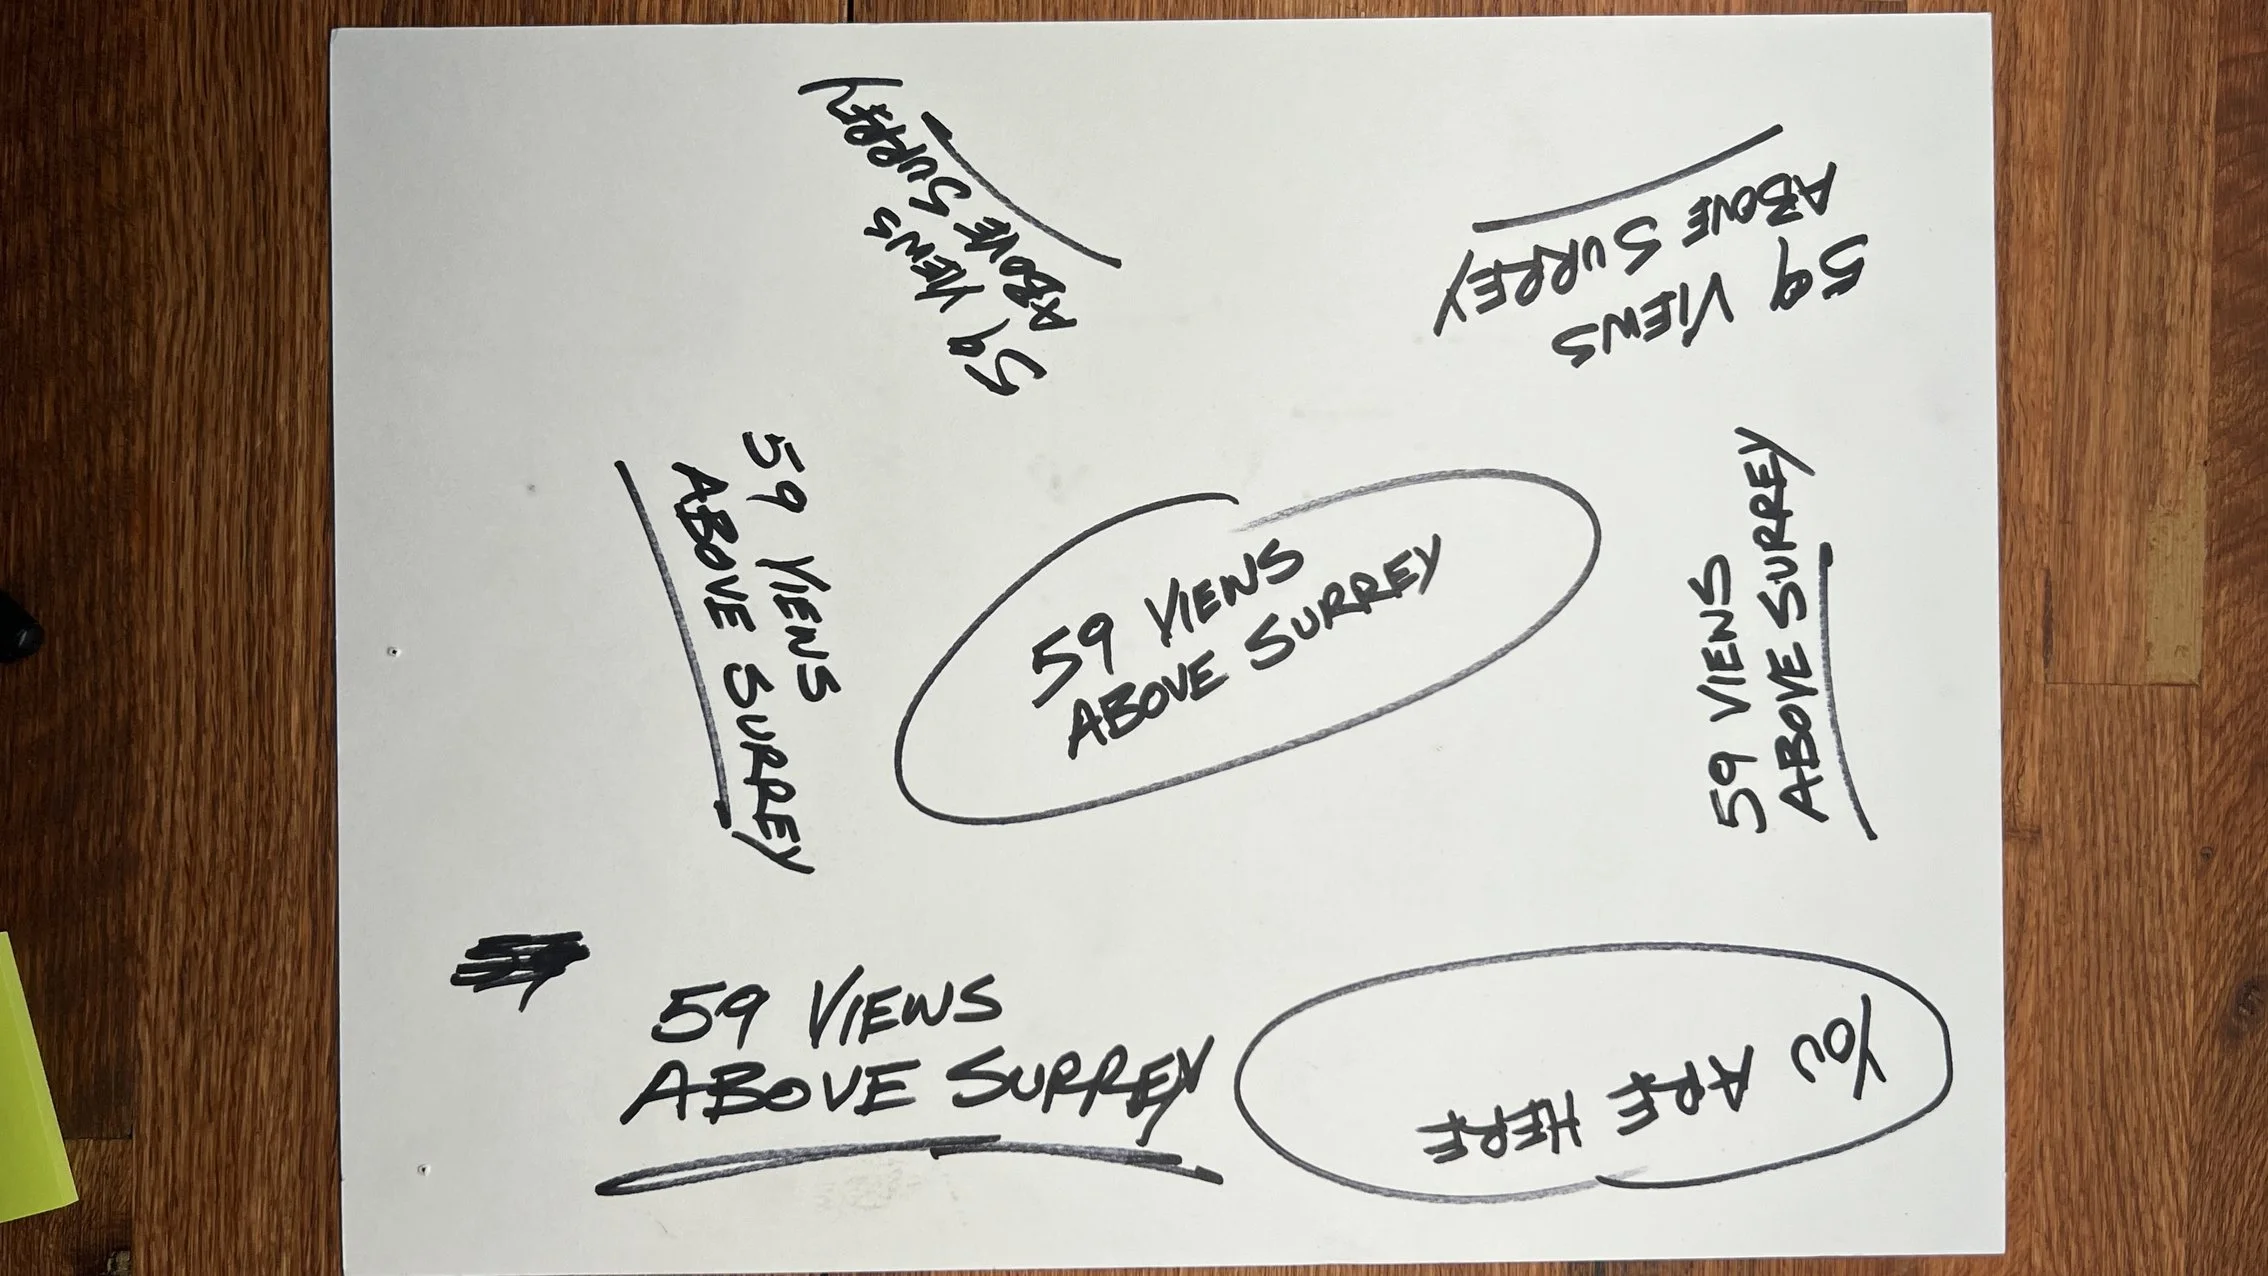 59 VIEWS
ABOVE SURREY
59 VIEWS
ABOVE SURREY
59 VIEWS
ABOVE SURREY
59 VIEWS
ABOVE SURREY
59 VIEWS
ABOVE SURREY
59 VIEWS
ABOVE SURREY
YOU
ARE
HERE